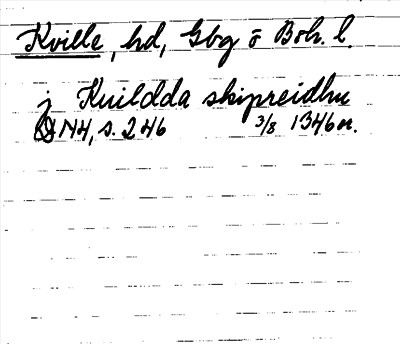 Kville, hd, Gbg ö Boh. l.
j Kuildda skipreidhu
DN4, s. 246 3/8 1346 n.